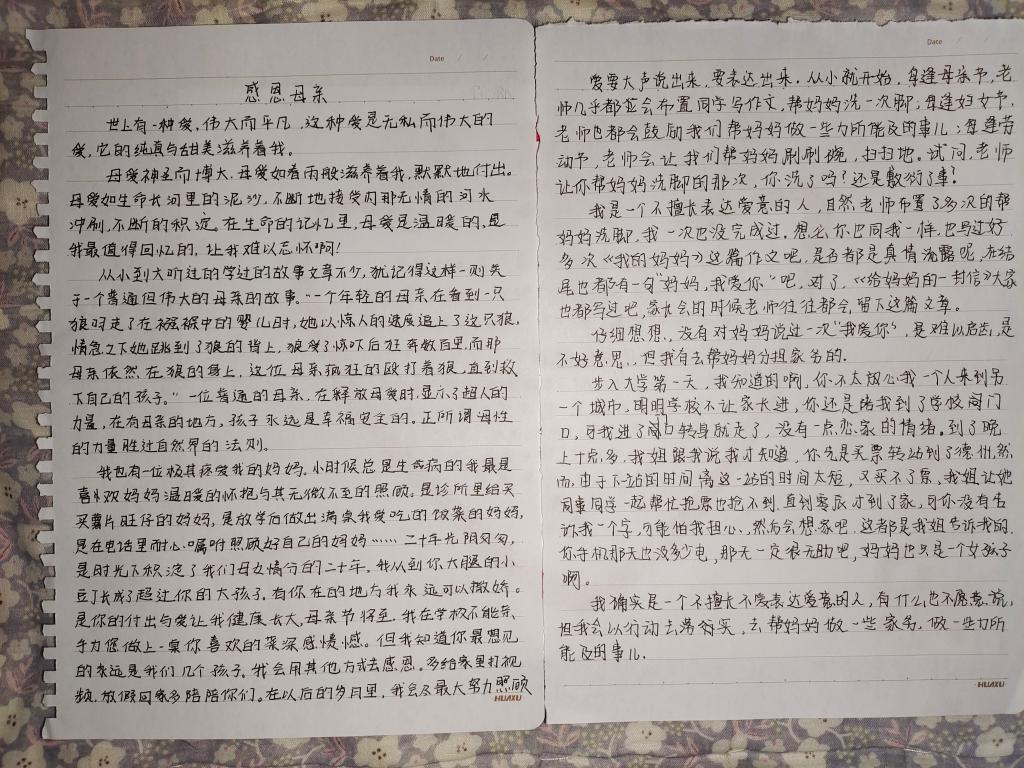 Date
感恩母亲
世上有一种爱,伟大而平凡,这种爱是无私而伟大的
爱,它的纯真与甜美滋养着我。
母爱神圣而博大,母爱如春雨般滋养着我,默默地付出。
母爱如生命长河里的泥沙,不断地接受内那无情的河水
冲刷,不断的积淀。在生命的记忆里,母爱是温暖的,是
我最值得回忆的,让我难以忘怀啊!
从小到大听过的学过的故事文章不少,犹记得这样一则关
于一个普通但伟大的母亲的故事。“一个年轻的母亲在看到一只
狼叼走了在襁褓中的婴儿时,她以惊人的速度追上了这只狼,
情急之下她跳到了狼的背上,狼受了惊吓后狂奔数百里,而那
母亲依然在狼的身上,这位母亲疯狂的殴打着狼,直到救
下自己的孩子。”一位普通的母亲,在解放母爱时,显示了超人的
力量,在有母亲的地方,孩子永远是幸福安全的。正所谓母性
的力量胜过自然界的法则。
我也有一位极其疼爱我的妈妈,小时候总是生病的我最是
喜欢妈妈温暖的怀抱与其无微不至的照顾。是诊所里给买
买薯片旺仔的妈妈,是放学后做出满桌我爱吃的饭菜的妈妈,
是在电话里耐心嘱咐照顾好自己的妈妈……二十年光阴匆匆,
是时光下积淀了我们母女情分的二十年。我从到你大腿的小
豆丁长成了超过你的大孩子。有你在的地方我永远可以撒娇。
是你的付出与爱让我健康长大,母亲节将至,我在学校不能亲
手为您做上一桌你喜欢的菜深感情憾。但我知道你最想见
的永远是我们几个孩子。我会用其他方式去感恩。多给家里打视
频,放假回家多陪陪你们。在以后的岁月里,我会尽最大努力照顾
HUAXU
Date
爱要大声说出来,要表达出来。从小就开始,每逢母亲节,老
师几乎都会布置同学写作文,帮妈妈洗一次脚;每逢妇女节,
老师也都会鼓励我们帮妈妈做一些力所能及的事儿;每逢劳
动节,老师会让我们帮妈妈刷刷碗,扫扫地。试问,老师
让你帮妈妈洗脚的那次,你洗了吗?还是敷衍了事?
我是一个不擅长表达爱意的人,自然老师布置了多次的帮
妈妈洗脚,我一次也没完成过,想必你也同我一样,也写过好
多次《我的妈妈》这篇作文吧,是否都是真情流露呢,在结
尾也都有一句“妈妈,我爱你”吧,对了,《给妈妈的一封信》大家
也都写过吧,家长会的时候老师往往都会留下这篇文章。
仔细想想,没有对妈妈说过一次“我爱你”,是难以启齿,是
不好意思,但我有去帮妈妈分担家务的。
步入大学第一天,我知道的啊,你不太放心我一个人来到另
一个城市,明明学校不让家长进,你还是陪我到了学校门
口,可我进了门口转身就走了,没有一点恋家的情绪。到了晚
上十点多,我姐跟我说我才知道,你先是买票转站到了德州,然
而,由于下站的时间离这一站的时间太短,又买不了票,我姐让她
同事同学一起帮忙抢票也抢不到,直到零辰才到了家,可你没有告
诉我一个字,可能怕我担心,然后会想家吧。这都是我姐告诉我的,
你手机那天也没多少电,那天一定很无助吧,妈妈也只是个女孩子
啊。
我确实是一个不擅长不爱表达爱意的人,有什么也不愿意说,
但我会以行动去落得实,去帮妈妈做一些家务,做一些力所
能及的事儿。
HUAXU